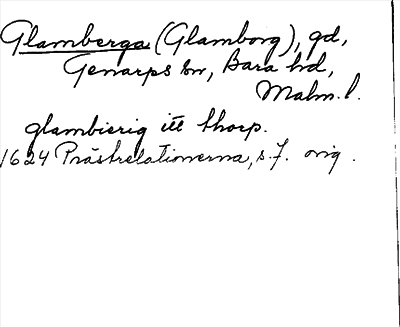 Glamberga (Glamborg), gd,
Genarps sn, Bara hd,
Malm. l.
glambierig itt thorp.
1624 Prästrelationerna, s. 7. orig.